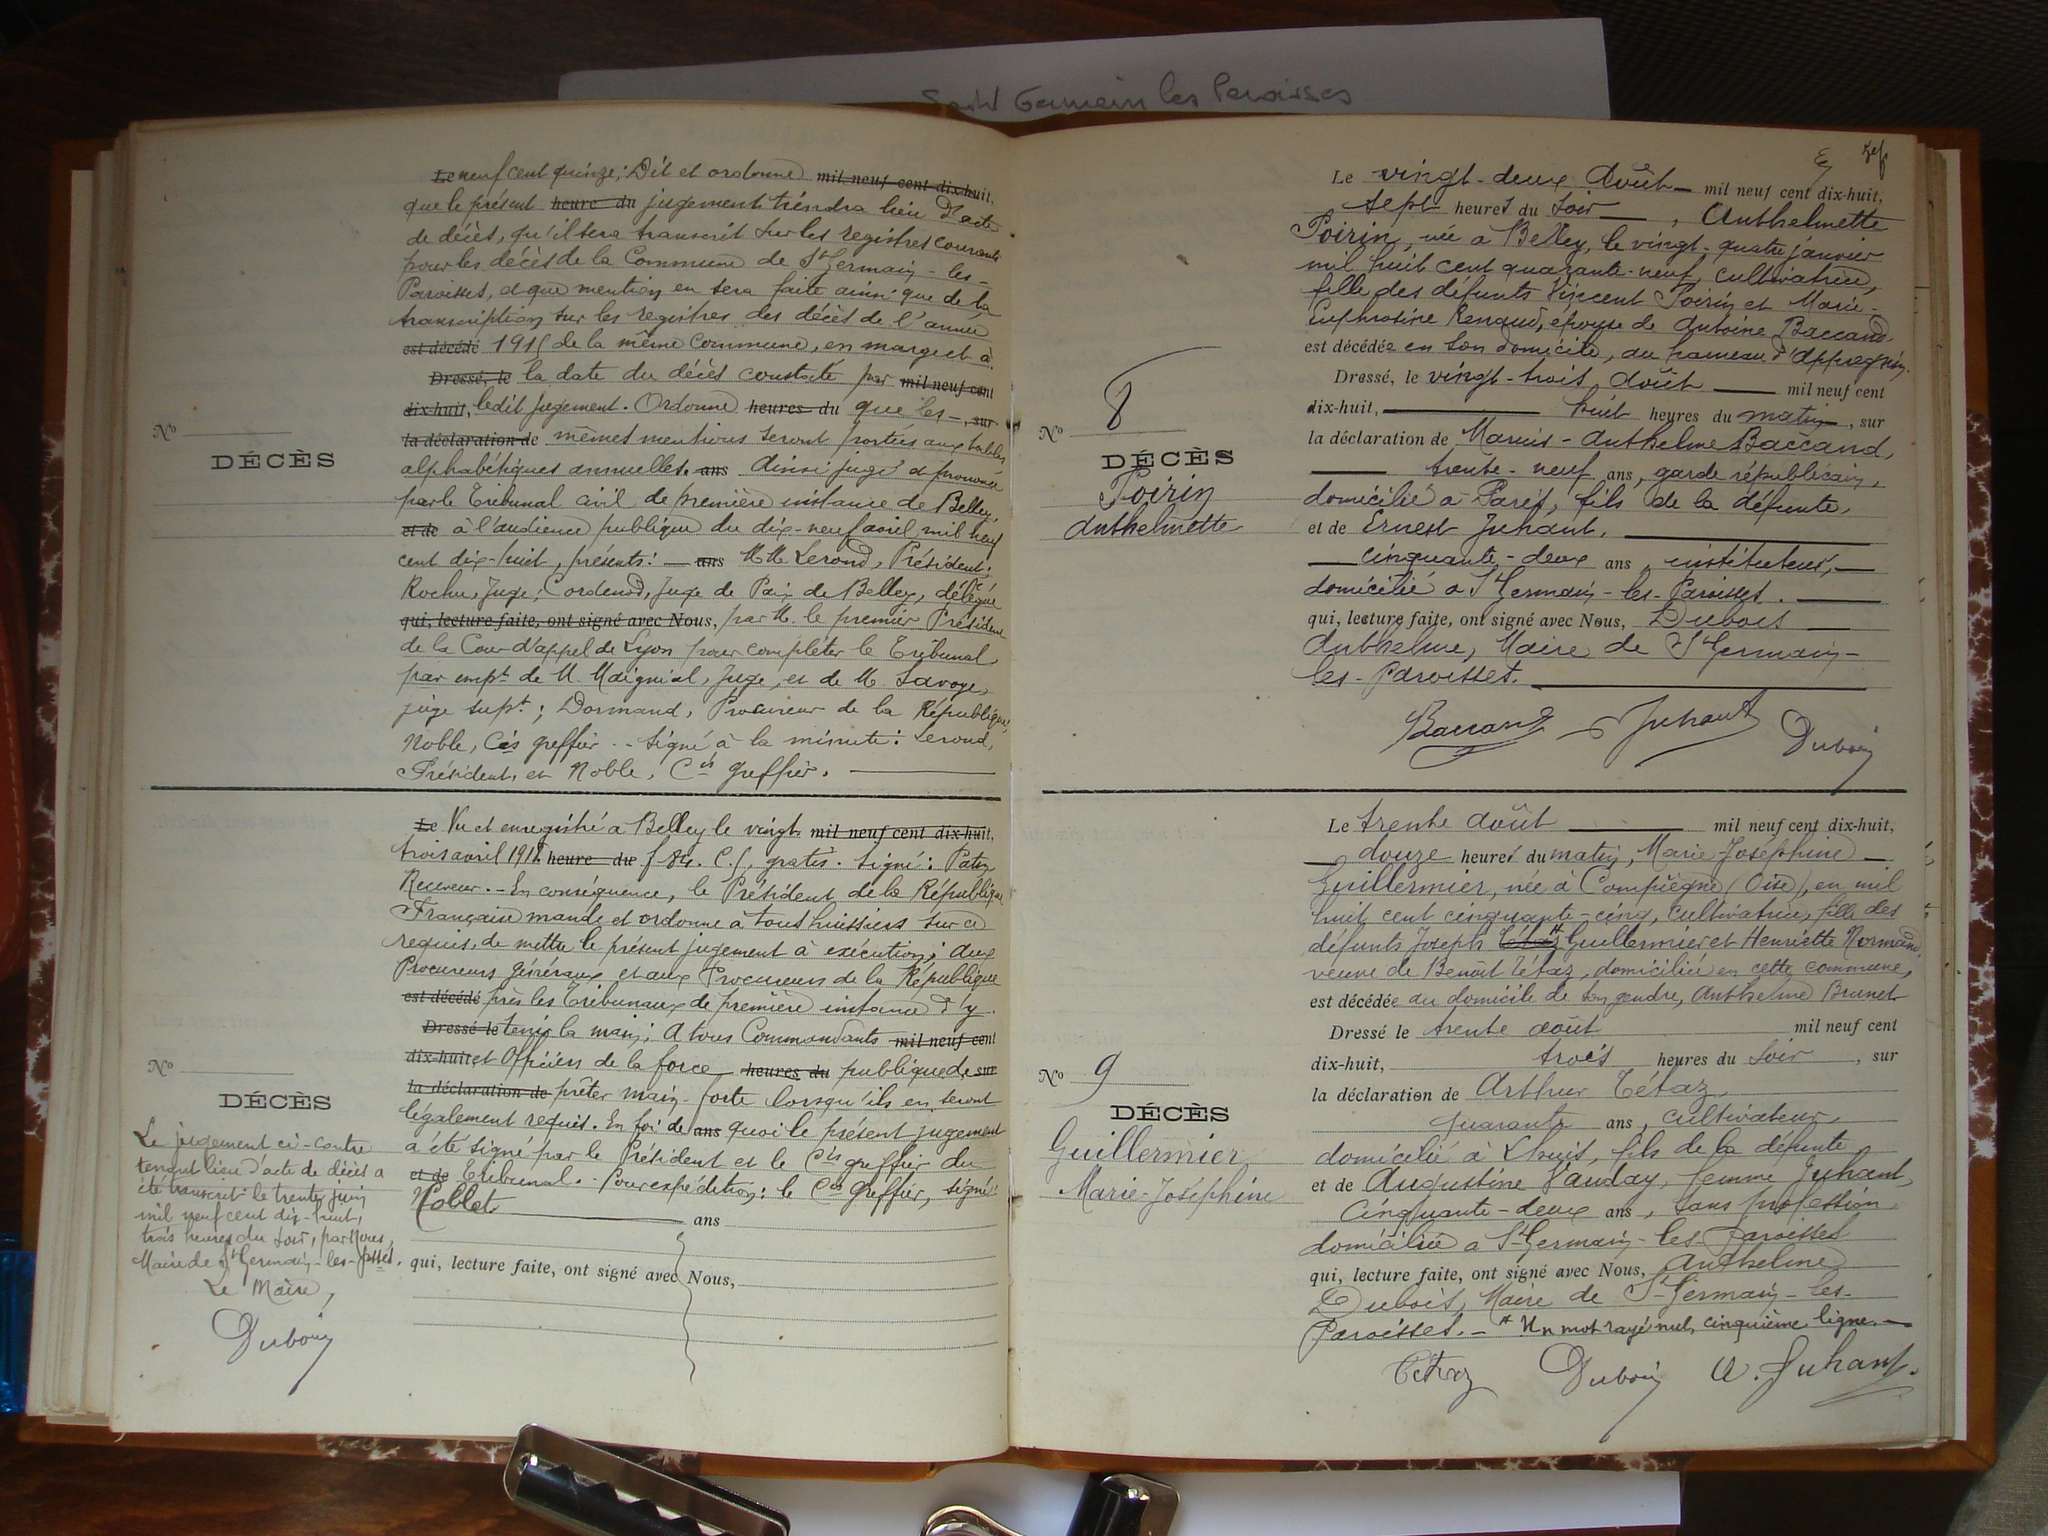 Saint Germain les Paroisses
Le neuf cent quinze; Dit et ordonne mil neuf cent dix-huit,
que le présent heure du jugement tiendra lieu d'acte
de décès, qu'il sera transcrit sur les registres courants
pour les décès de la Commune de St Germain-les-
Paroisses, et que mention en sera faite ainsi que de la
transcription sur les registres des décès de l'année
est décédé 1915 de la même Commune, en marge et à
Dressé, le la date du décès constaté par mil neuf cent
dix-huit, ledit jugement. Ordonne heures du que les, sur
la déclaration de mêmes mentions seront portées aux tables
alphabétiques annuelles. ans Ainsi jugé et prononcé
par le Tribunal civil de première instance de Belley,
et de à l'audience publique du dix-neuf avril mil neuf
cent dix-huit, présents: ans M.M. Lerond, Président;
Rochu, Juge; Cordenod, Juge de Paix de Belley, délégué
qui, lecture faite, ont signé avec Nous, par M. le premier Président
de la Cour d'appel de Lyon pour compléter le Tribunal,
par empt de M. Maignial, Juge, et de M. Savoye,
juge supt; Dormand, Procureur de la République,
Noble, Cis greffier. - Signé à la minute: Lerond,
Président, et Noble, Cis greffier.
N°
DÉCÈS
Le Vu et enregistré à Belley le vingt mil neuf cent dix-huit,
trois avril 1918 heure du f 84. C. , gratis. Signé:
Receveur. - En conséquence, le Président de la République
Française mande et ordonne à tous huissiers sur ce
requis, de mettre le présent jugement à exécution; aux
Procureurs Généraux et aux Procureurs de la République
est décédé près les Tribunaux de première instance d'y
Dressé le tenir la main; A tous Commandants mil neuf cent
dix-huit et Officiers de la force heures du publique de sur
la déclaration de prêter main-forte lorsqu'ils en seront
légalement requis. En foi de ans quoi le présent jugement
a été signé par le Président et le Cis greffier du
et de Tribunal. - Pour expédition: le Cis Greffier, signé:
Noblet ans
qui, lecture faite, ont signé avec Nous,
N°
DÉCÈS
Le jugement ci-contre
tenant lieu d'acte de décès a
été transcrit le trente juin
mil neuf cent dix-huit,
trois heures du soir, par Nous,
Maire de St Germain-les-Psses.
Le Maire,
Dubois
8
N°
DÉCÈS
Poirin
Anthelmette
Le vingt-deux Août mil neuf cent dix-huit,
sept heures du soir, Anthelmette
Poirin, née à Belley, le vingt-quatre janvier
mil huit cent quarante-neuf, cultivatrice,
fille des défunts Vincent Poirin et Marie-
Euphrosine Renaud, épouse de Antoine Baccand
est décédée en son domicile, au hameau d'Appregnin.
Dressé, le vingt-trois août mil neuf cent
dix-huit, huit heures du matin, sur
la déclaration de Marius-Anthelme Baccand,
trente-neuf ans, garde républicain,
domicilié à Paris, fils de la défunte,
et de Ernest Juhant,
cinquante-deux ans, instituteur,
domicilié à St Germain-les-Paroisses.
qui, lecture faite, ont signé avec Nous, Dubois
Anthelme, Maire de St Germain-
les-Paroisses.
Baccand Juhant Dubois
N° 9
DÉCÈS
Guillermier
Marie-Joséphine
Le trente août mil neuf cent dix-huit,
douze heures du matin, Marie-Joséphine
Guillermier, née à Compiègne (Oise), en mil
huit cent cinquante-cinq, cultivatrice, fille des
défunts Joseph Tétaz Guillermier et Henriette Normand,
veuve de Benoît Tétaz, domiciliée en cette commune,
est décédée au domicile de son gendre, Anthelme Brunet.
Dressé le trente août mil neuf cent
dix-huit, trois heures du soir, sur
la déclaration de Arthur Tétaz,
quarante ans, cultivateur,
domicilié à Lhuis, fils de la défunte
et de Augustine Vauday, femme Juhant,
cinquante-deux ans, sans profession,
domiciliée à St Germain-les-Paroisses
qui, lecture faite, ont signé avec Nous, Anthelme
Dubois, Maire de St Germain-les-
Paroisses. - Un mot rayé nul, cinquième ligne. -
Tétaz Dubois A. Juhant.